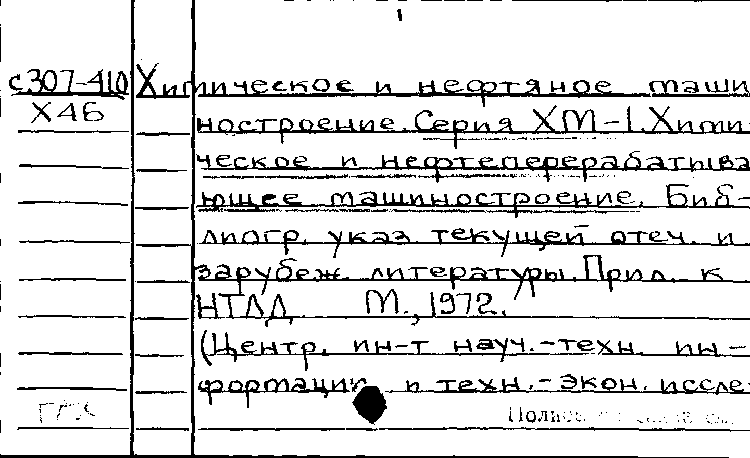 с307-410 Химическое и нефтяное маши
Х46 ностроение. Серия ХМ-1. Хими-
ческое и нефтеперерабатыва
ющее машиностроение. Биб-
лиогр. указ. текущей отеч. и
зарубеж. литературы. Прил. к
НТЛД М., 1972.
(Центр. ин-т науч.-техн. ин-
формации и техн.-экон. иссле